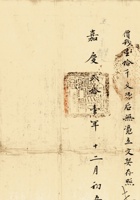 價錢壹拾千文恐后無憑立文契存照
嘉慶弍拾壹年十二月初